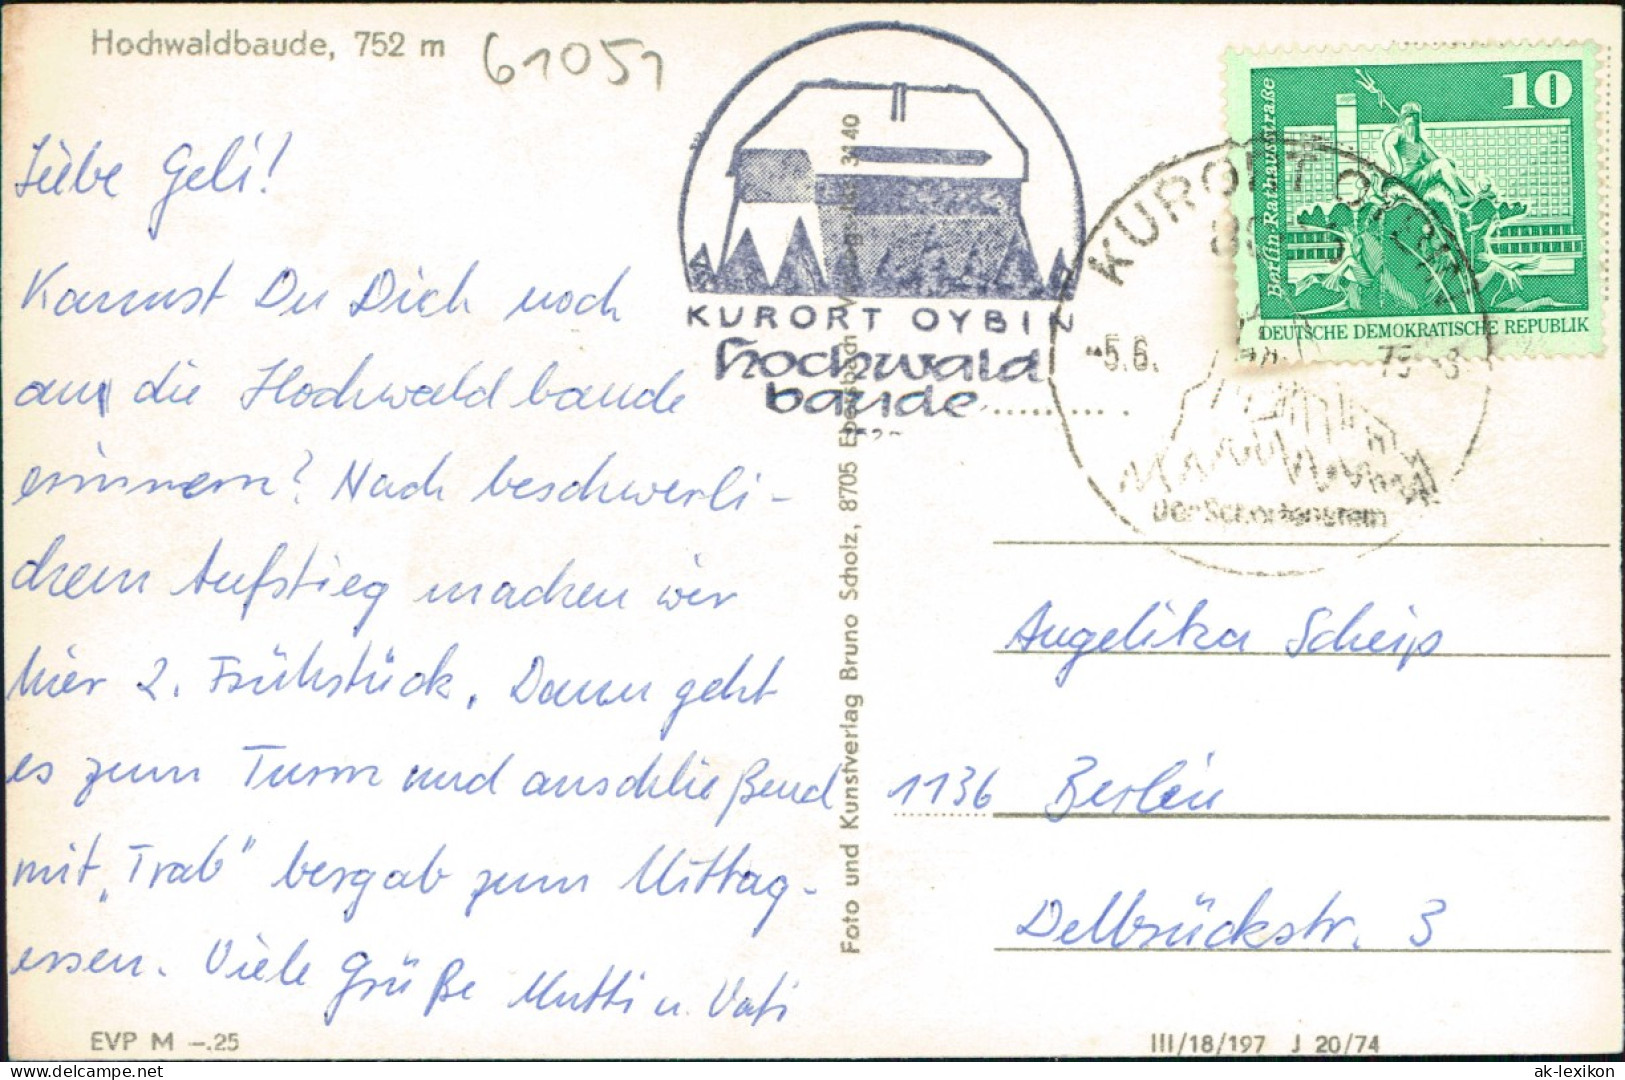 Hochwaldbaude, 752 m
61051
Liebe Geli!
Kannst Du Dich noch
an die Hochwaldbaude
erinnern? Nach beschwerli-
chem Aufstieg machen wir
hier 2. Frühstück. Dann geht
es zum Turm und anschließend
mit „Trab" bergab zum Mittag-
essen. Viele Grüße Mutti u. Vati
EVP M –.25
KURORT OYBIN
Hochwald
baude
Foto und Kunstverlag Bruno Scholz, 8705 Ebersbach 3140
KURORT OYBIN
-5.6.
Der Schortenstein
10
Berlin-Rathausstraße
DEUTSCHE DEMOKRATISCHE REPUBLIK
Angelika Scheip
1136 Berlin
Delbrückstr. 3
III/18/197 J 20/74
ak-lexikon